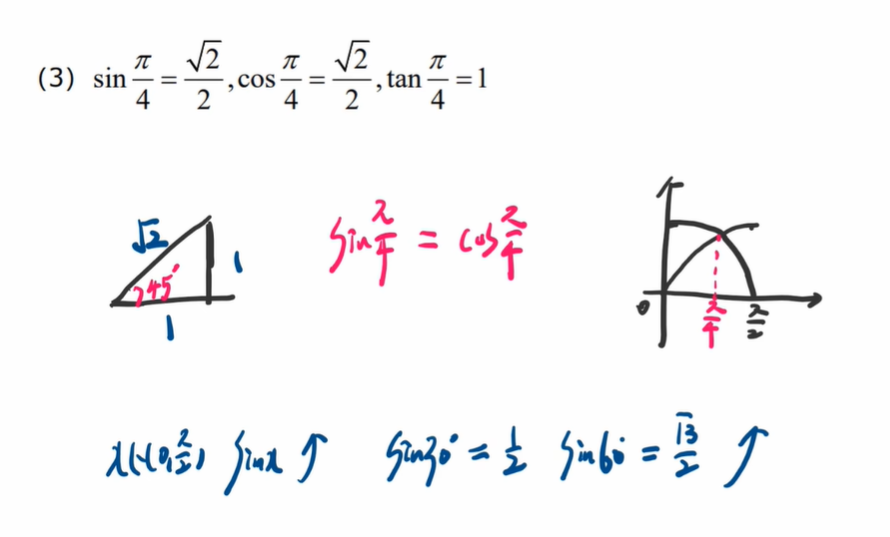 (3) sin π/4 = √2/2, cos π/4 = √2/2, tan π/4 = 1
√2
45°
1
1
sin π/4 = cos π/4
0
π/4
π/2
x∈(0, π/2) sinx ↑ sin30° = 1/2 sin60° = √3/2 ↑